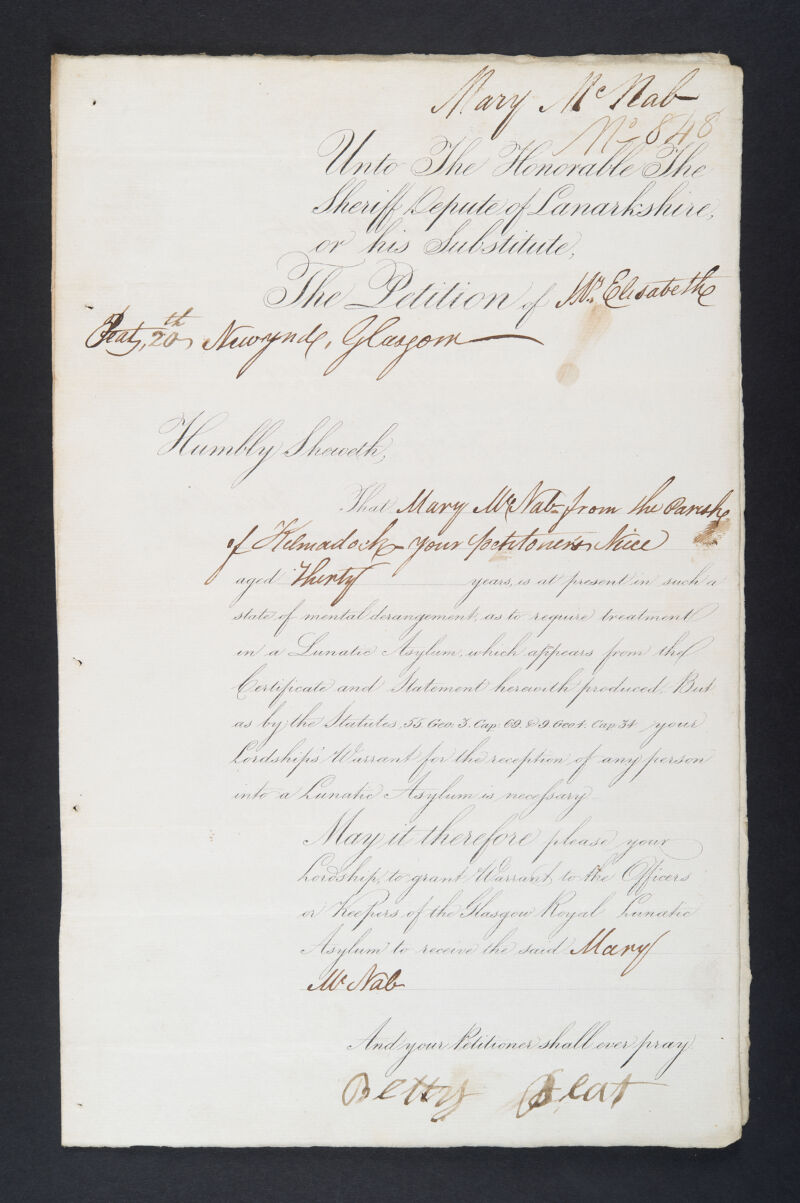 Mary McNab
No 848
Unto The Honorable The
Sheriff Depute of Lanarkshire,
or his Substitute,
The Petition of Mrs Elisabeth
Peat, 20th Newynd, Glasgow
Humbly Sheweth,
That Mary McNab from the Parish
of Kilmadock your petitoners Niece
aged Thirty years, is at present in such a
state of mental derangement, as to require treatment
in a Lunatic Asylum, which appears from the
Certificate and Statement herewith produced. But
as by the Statutes, 55 Geo. 3. Cap. 69. & 9. Geo 4. Cap. 34 your
Lordship's Warrant for the reception of any person
into a Lunatic Asylum is necessary
May it therefore please your
Lordship, to grant Warrant to the Officers
or Keepers, of the Glasgow Royal Lunatic
Asylum to receive the said Mary
Mc Nab
And your Petitioner shall ever pray
Betty Peat